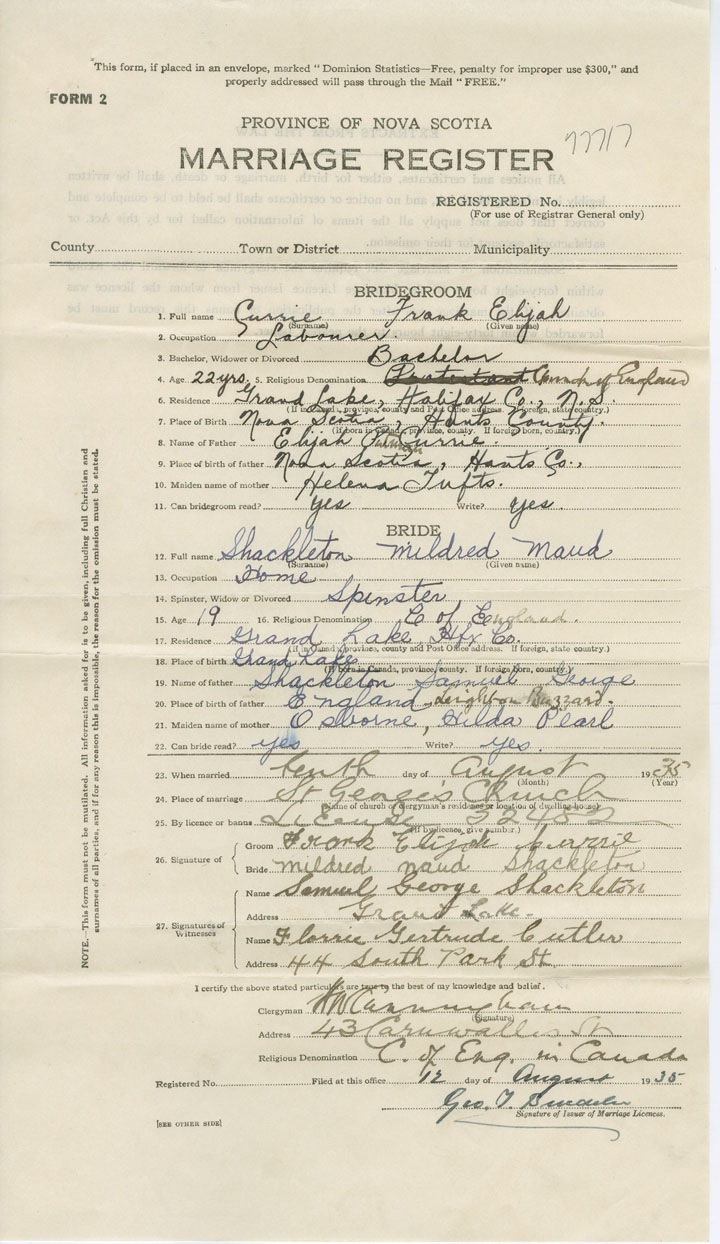 This form, if placed in an envelope, marked "Dominion Statistics—Free, penalty for improper use $300," and
properly addressed will pass through the Mail "FREE."
FORM 2
PROVINCE OF NOVA SCOTIA
77717
MARRIAGE REGISTER
REGISTERED No.
(For use of Registrar General only)
County Town or District Municipality
BRIDEGROOM
1. Full name Currie Frank Elijah
(Surname) (Given name)
2. Occupation Labourer.
3. Bachelor, Widower or Divorced Bachelor
4. Age 22 yrs. 5. Religious Denomination Protestant Church of England
6. Residence Grand Lake, Halifax Co., N.S.
(If in Canada, province, county and Post Office address. If foreign, state country.)
7. Place of Birth Nova Scotia, Hants County.
(If born in Canada, province, county. If foreign born, country.)
8. Name of Father Elijah Currie.
9. Place of birth of father Nova Scotia, Hants Co.,
10. Maiden name of mother Helena Tufts.
11. Can bridegroom read? yes Write? yes.
BRIDE
12. Full name Shackleton Mildred Maud
(Surname) (Given name)
13. Occupation Home
14. Spinster, Widow or Divorced Spinster
15. Age 19 16. Religious Denomination C of England.
17. Residence Grand Lake, Hfx Co.
(If in Canada, province, county and Post Office address. If foreign, state country.)
18. Place of birth Grand Lake
(If born in Canada, province, county. If foreign born, country.)
19. Name of father Shackleton Samuel George
20. Place of birth of father England, Leighton Buzzard.
21. Maiden name of mother Osborne, Hilda Pearl
22. Can bride read? yes Write? yes.
23. When married tenth day of August 1935
(Month) (Year)
24. Place of marriage St George's Church
(Name of church or clergyman's residence or location of dwelling house)
25. By licence or banns License 32452
(If by licence, give number.)
26. Signature of
Groom Frank Elijah Currie
Bride mildred maud Shackleton
27. Signatures of Witnesses
Name Samuel George Shackleton
Address Grand Lake.
Name Florrie Gertrude Cutler
Address 44 South Park St
I certify the above stated particulars are true to the best of my knowledge and belief.
Clergyman Cunningham
(Signature)
Address 43 Cornwallis St
Religious Denomination C. of Eng. in Canada
Registered No. Filed at this office 12 day of August 1935
Geo. T.
Signature of Issuer of Marriage Licences.
[SEE OTHER SIDE]
NOTE.—This form must not be mutilated. All information asked for is to be given, including full Christian and
surnames of all parties, and if for any reason this is impossible, the reason for the omission must be stated.